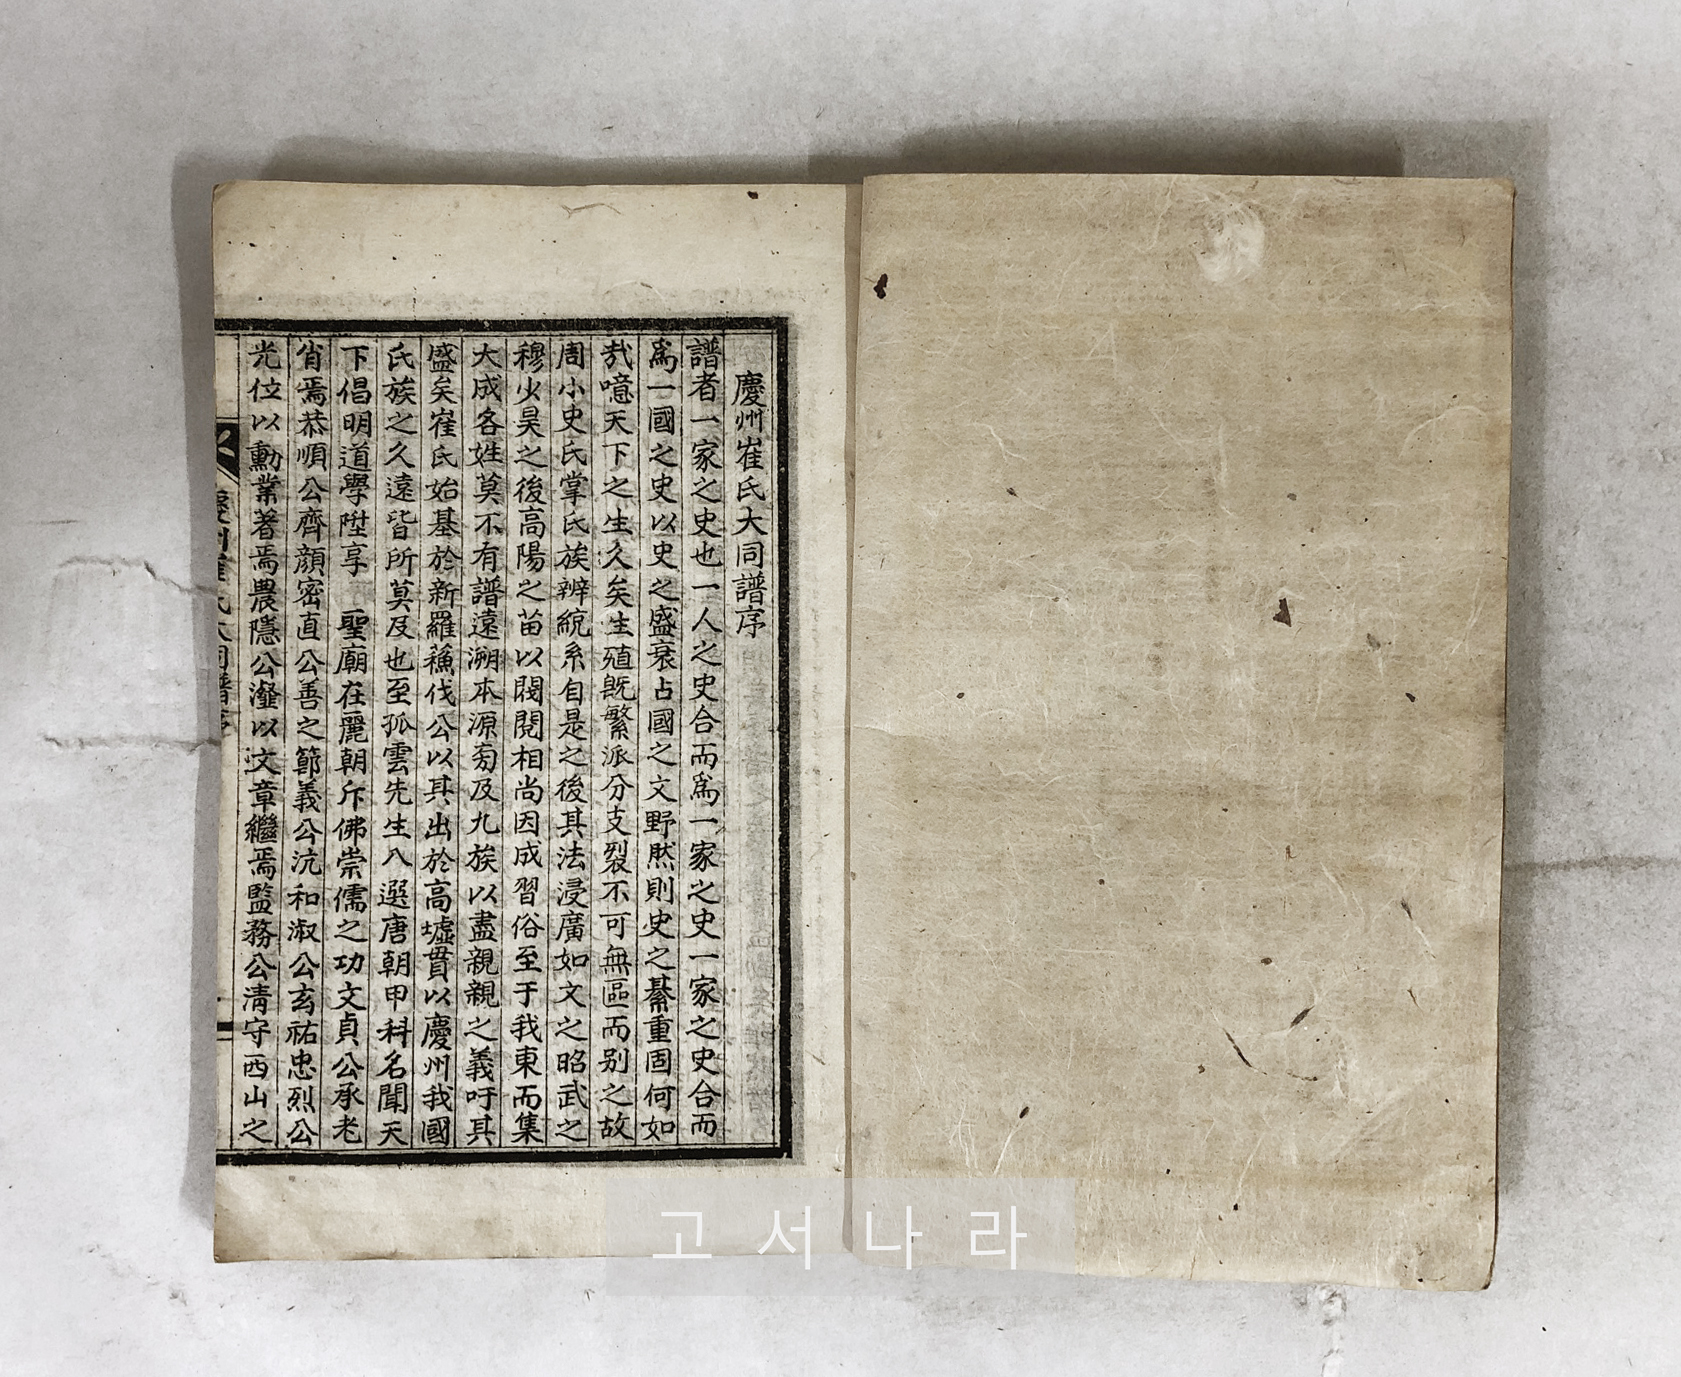 慶州崔氏大同譜序
譜者一家之史也一人之史合而爲一家之史一家之史合而
爲一國之史以史之盛衰占國之文野然則史之綦重固何如
㢤噫天下之生久矣生殖旣繁派分支裂不可無區而别之故
周小史氏掌氏族辨統系自是之後其法浸廣如文之昭武之
穆少昊之後高陽之苗以閥閱相尚因成習俗至于我東而集
大成各姓莫不有譜遠溯本源旁及九族以盡親親之義吁其
盛矣崔氏始基於新羅蘓伐公以其出於高墟貫以慶州我國
氏族之久遠皆所莫及也至孤雲先生八選唐朝甲科名聞天
下倡明道學陞享 聖廟在麗朝斥佛崇儒之功文貞公承老
肖焉恭順公齊顔密直公善之節義公沆和淑公玄祐忠烈公
光位以勳業著焉農隱公瀣以文章繼焉監務公淸守西山之
慶州崔氏大同譜序
고서나라